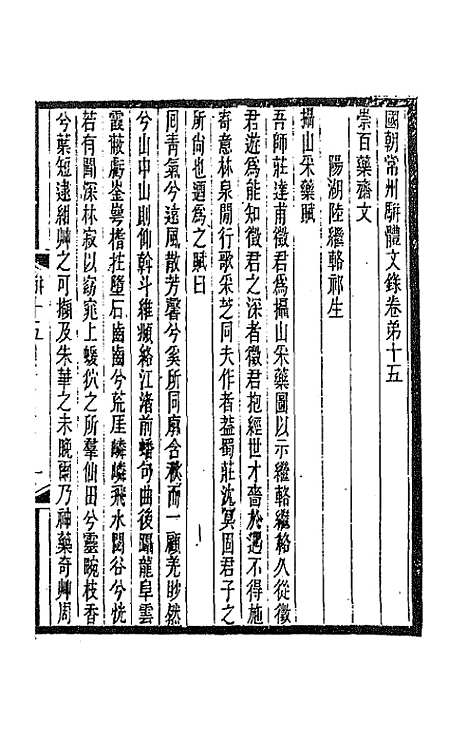 國朝常州駢體文錄卷弟十五
崇百藥齋文
陽湖陸繼輅祁生
攝山采藥賦
吾師莊達甫徵君爲攝山采藥圖以示繼輅繼輅久從徵
君遊爲能知徵君之深者徵君抱經世才嗇於遇不得施
寄意林泉閒行歌采芝同夫作者益蜀莊沈冥固君子之
所尚也迺爲之賦曰
同青氣兮遠風散芳馨兮奚所同廓含歎而一顧羌眇然
兮山中山則仰斡斗維頫絡江渚前蟠句曲後躡龍阜雲
霞蔽虧崟崿榰拄墮石齒齒兮荒厓嶙嶙飛水閟谷兮恍
若有聞深林寂以窈窕上蝯狖之所羣仙田兮靈畹枝香
兮葉短逮細艸之可擷及朱華之未晚爾乃神藥奇艸周
駢十五
一